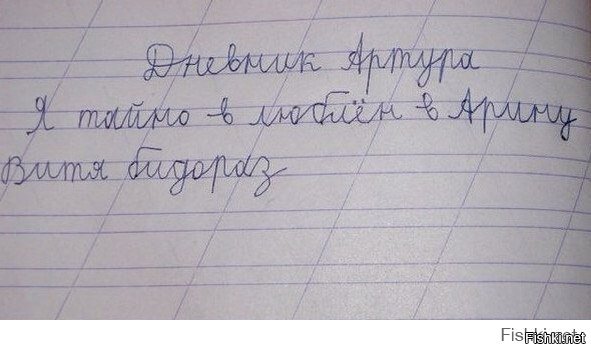 Дневник Артура
Я тайно в люблён в Арину
Витя бидораз
Fishki.net
Fishki.net